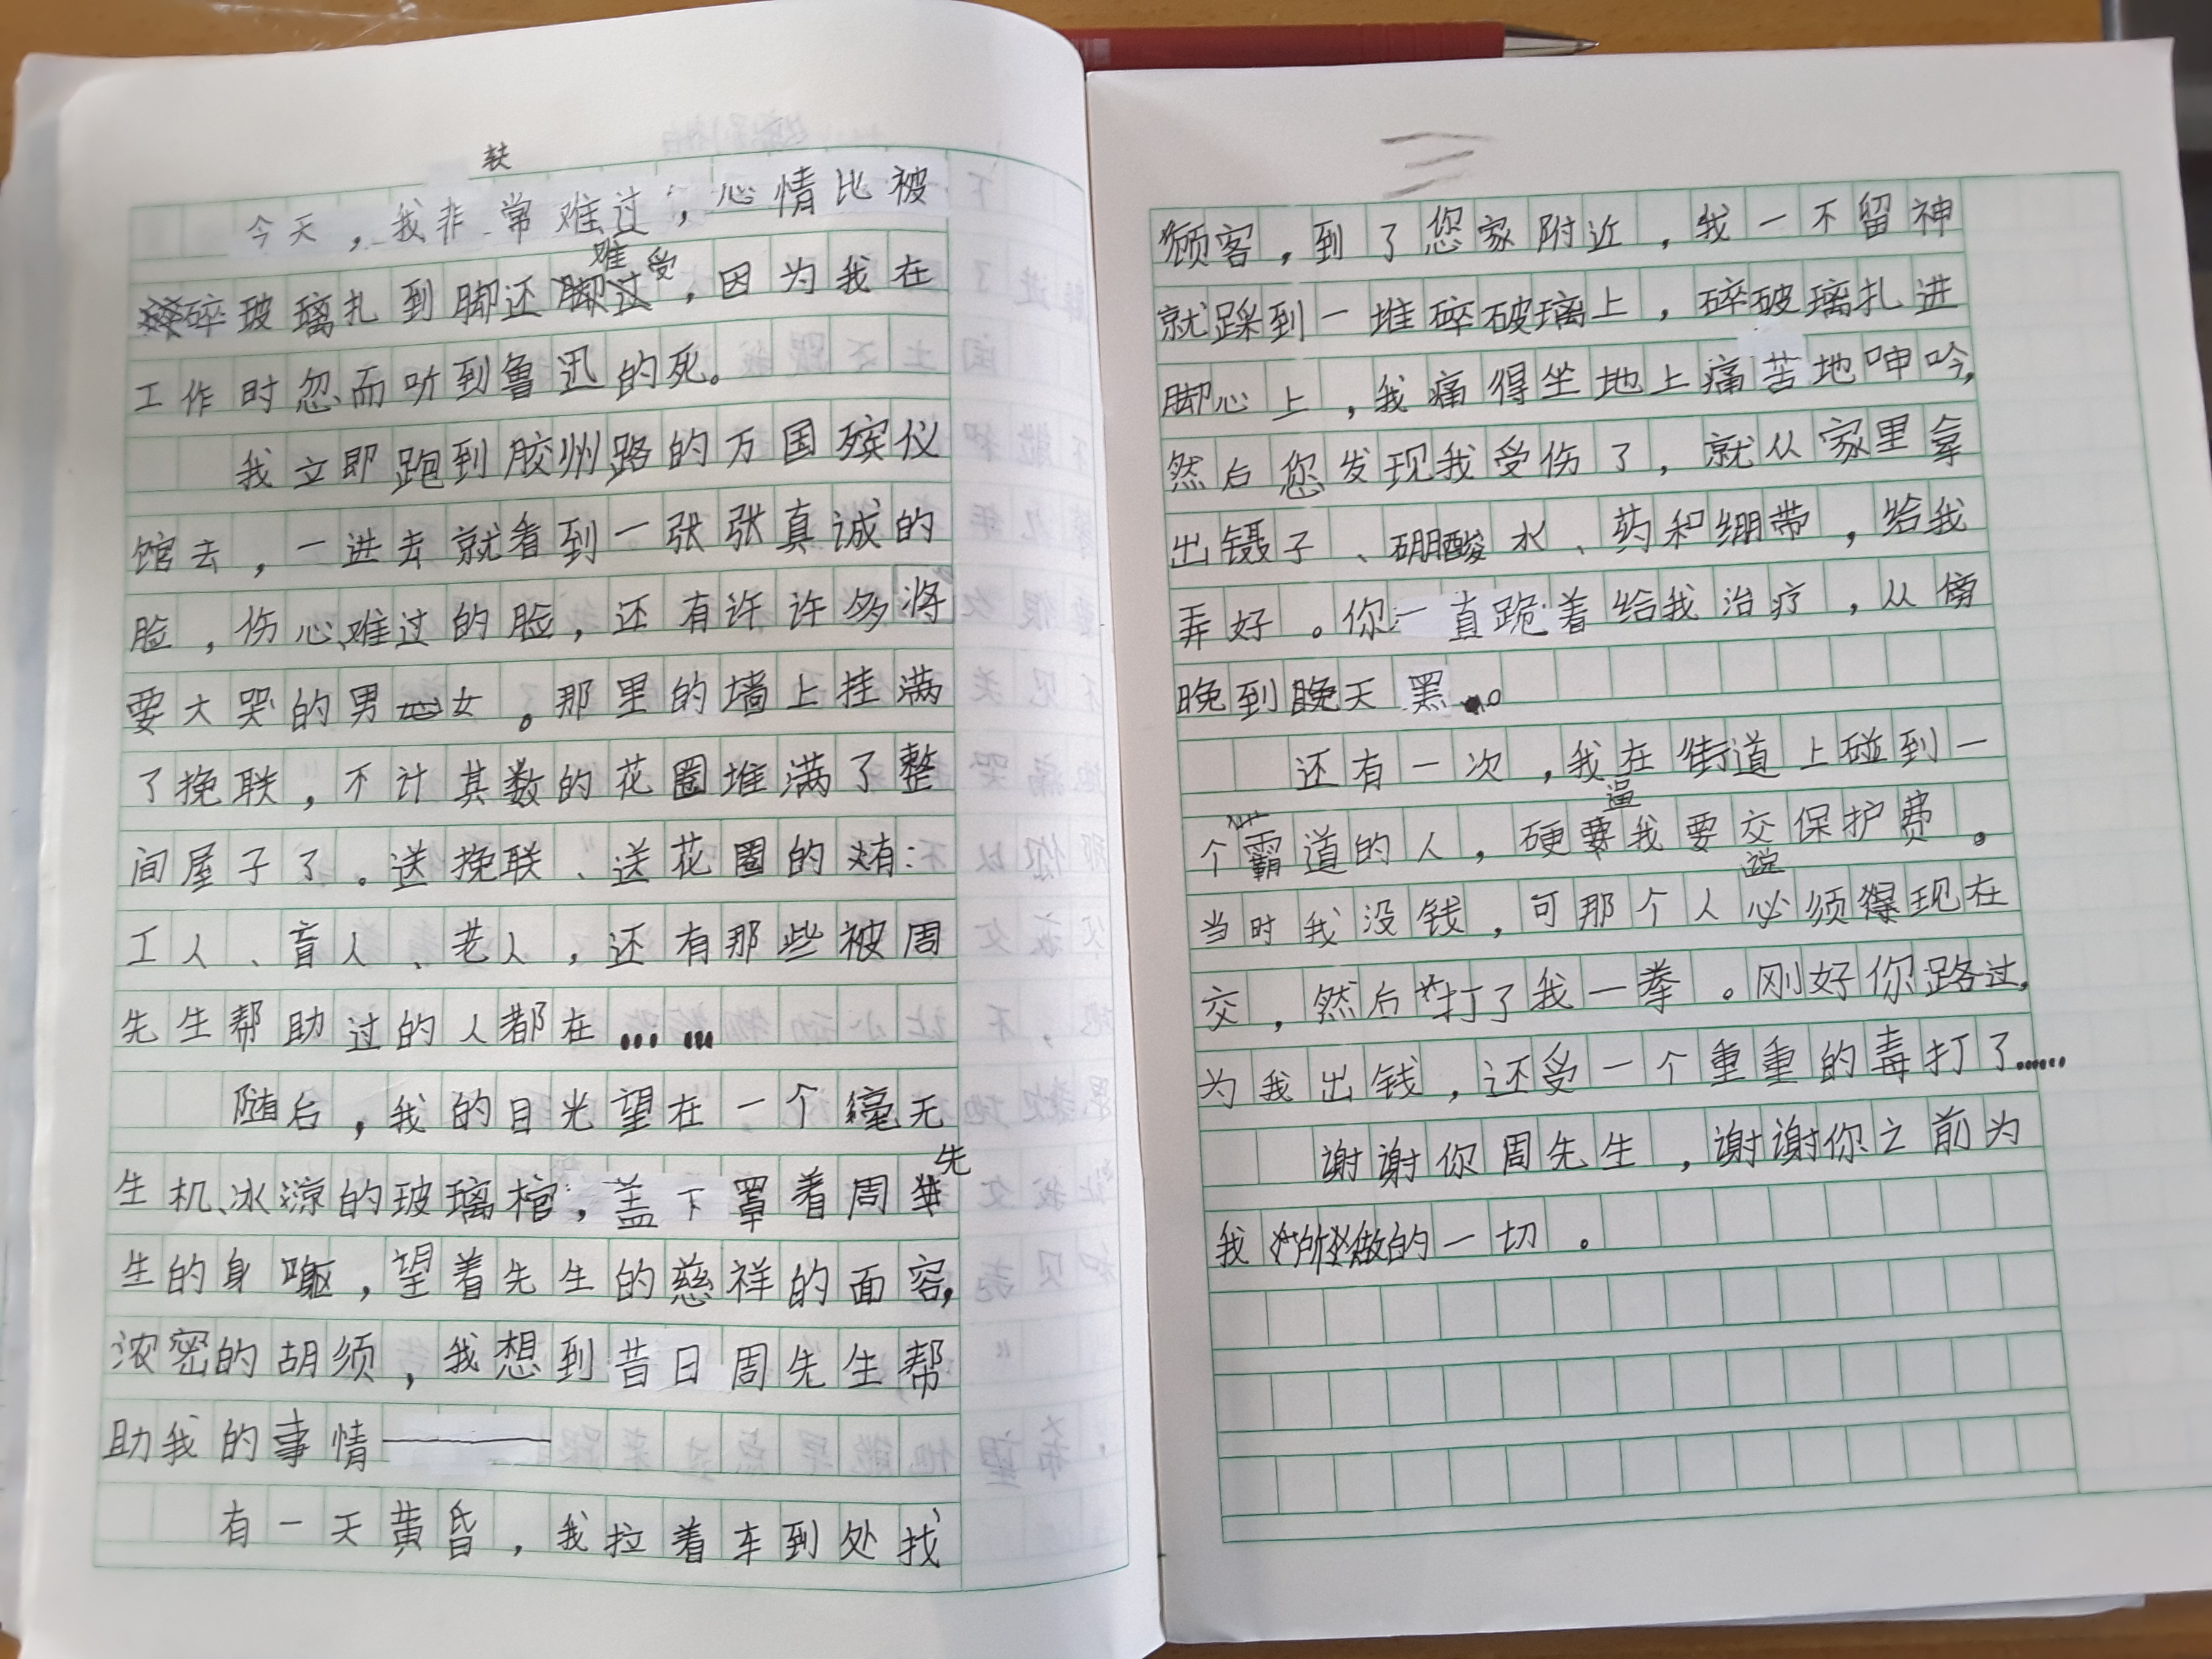 今天，我非常难过，心情比被
碎玻璃扎到脚还难受，因为我在
工作时忽而听到鲁迅的死。
我立即跑到胶州路的万国殡仪
馆去，一进去就看到一张张真诚的
脸，伤心、难过的脸，还有许许多将
要大哭的男女。那里的墙上挂满
了挽联，不计其数的花圈堆满了整
间屋子了。送挽联、送花圈的有：
工人、盲人、老人，还有那些被周
先生帮助过的人都在……
随后，我的目光望在一个毫无
生机、冰凉的玻璃棺，盖下罩着周先
生的身躯，望着先生的慈祥的面容，
浓密的胡须，我想到昔日周先生帮
助我的事情——
有一天黄昏，我拉着车到处找
三
顾客，到了您家附近，我一不留神
就踩到一堆碎玻璃上，碎玻璃扎进
脚心上，我痛得坐地上痛苦地呻吟，
然后您发现我受伤了，就从家里拿
出镊子、硼酸水、药和绷带，给我
弄好。你一直跪着给我治疗，从傍
晚到晚天黑。
还有一次，我在街道上碰到一
个霸道的人，硬逼我要交保护费。
当时我没钱，可那个人说必须得现在
交，然后打了我一拳。刚好你路过，
为我出钱，还受一个重重的毒打了……
谢谢你周先生，谢谢你之前为
我所做的一切。